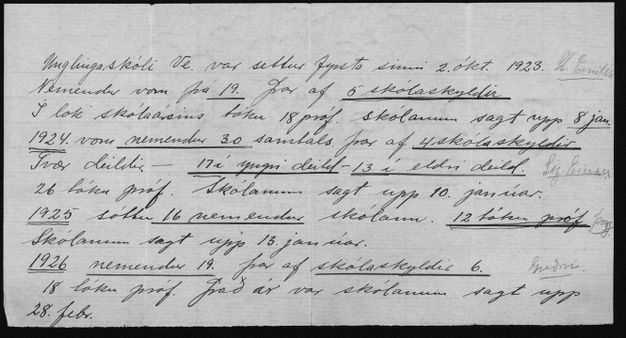 Unglingaskóli Ve. var settur fyrsta sinni 2. ókt. 1923.
Nemendur voru þá 19. Þar af 5 skólaskyldir
Í lok skólaársins tóku 18 próf. skólanum sagt upp 8 jan.
1924. voru nemendur 30 samtals, þar af 4 skólaskyldir
Tvær deildir — 17 í yngri deild - 13 í eldri deild.
26 tóku próf. Skólanum sagt upp 10. janúar.
1925 sóttu 16 nemendur skólann. 12 tóku próf
Skólanum sagt upp 13. janúar.
1926 nemendur 19. þar af skólaskyldir 6.
18 tóku próf. Það ár var skólanum sagt upp
28. febr.